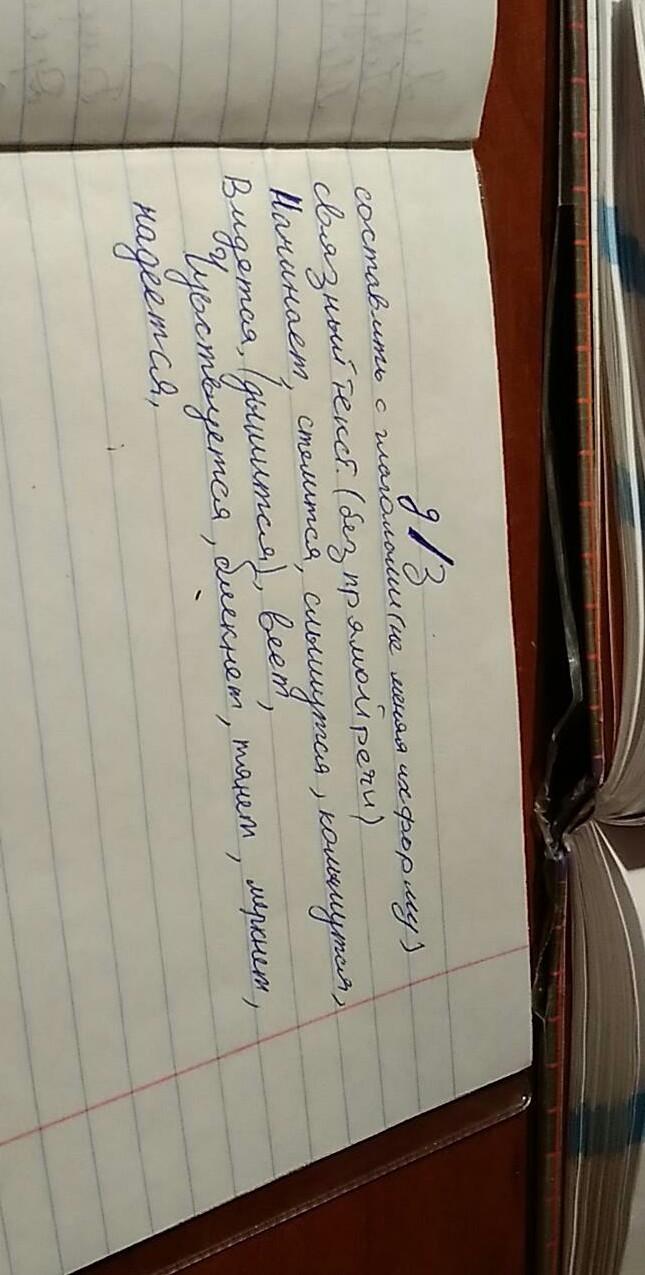 д/з
составить с глаголами (не меняя их форму)
связный текст. (без прямой речи)
Начинает, стелится, слышутся, колышутся,
Видятся, (дышится), веет,
Чувствуется, блекнет, тянет, меркнет,
надеется,